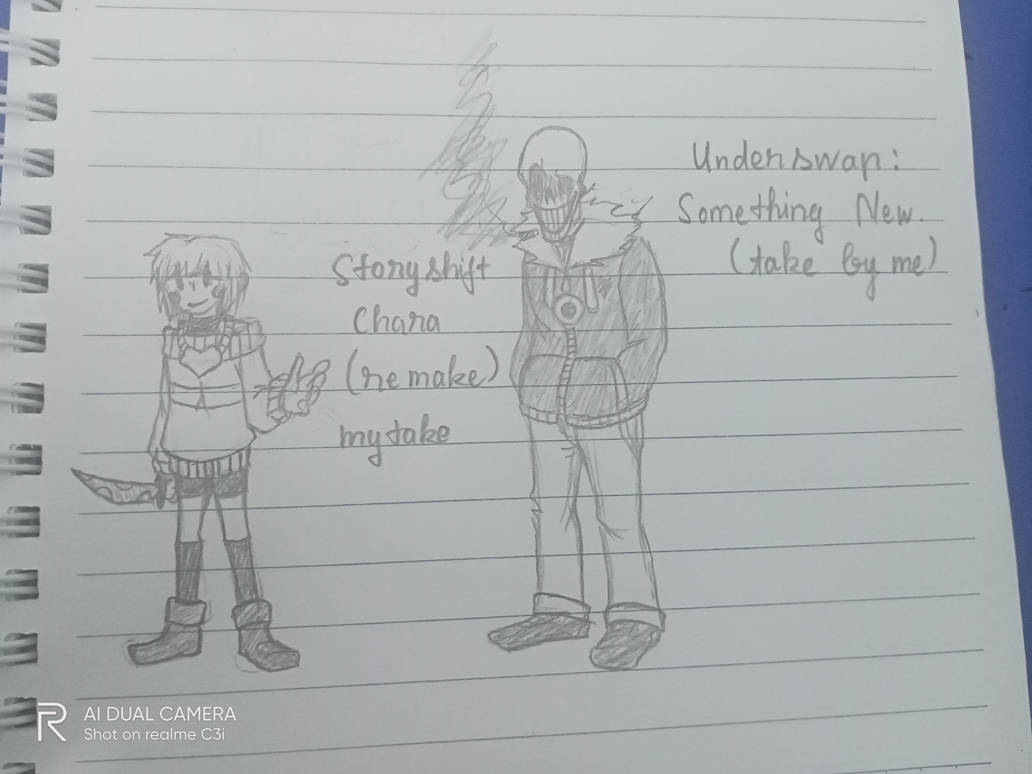 Storyshift
Chara
(remake)
my take
Underswap:
Something New.
(take by me)
R
AI DUAL CAMERA
Shot on realme C3i